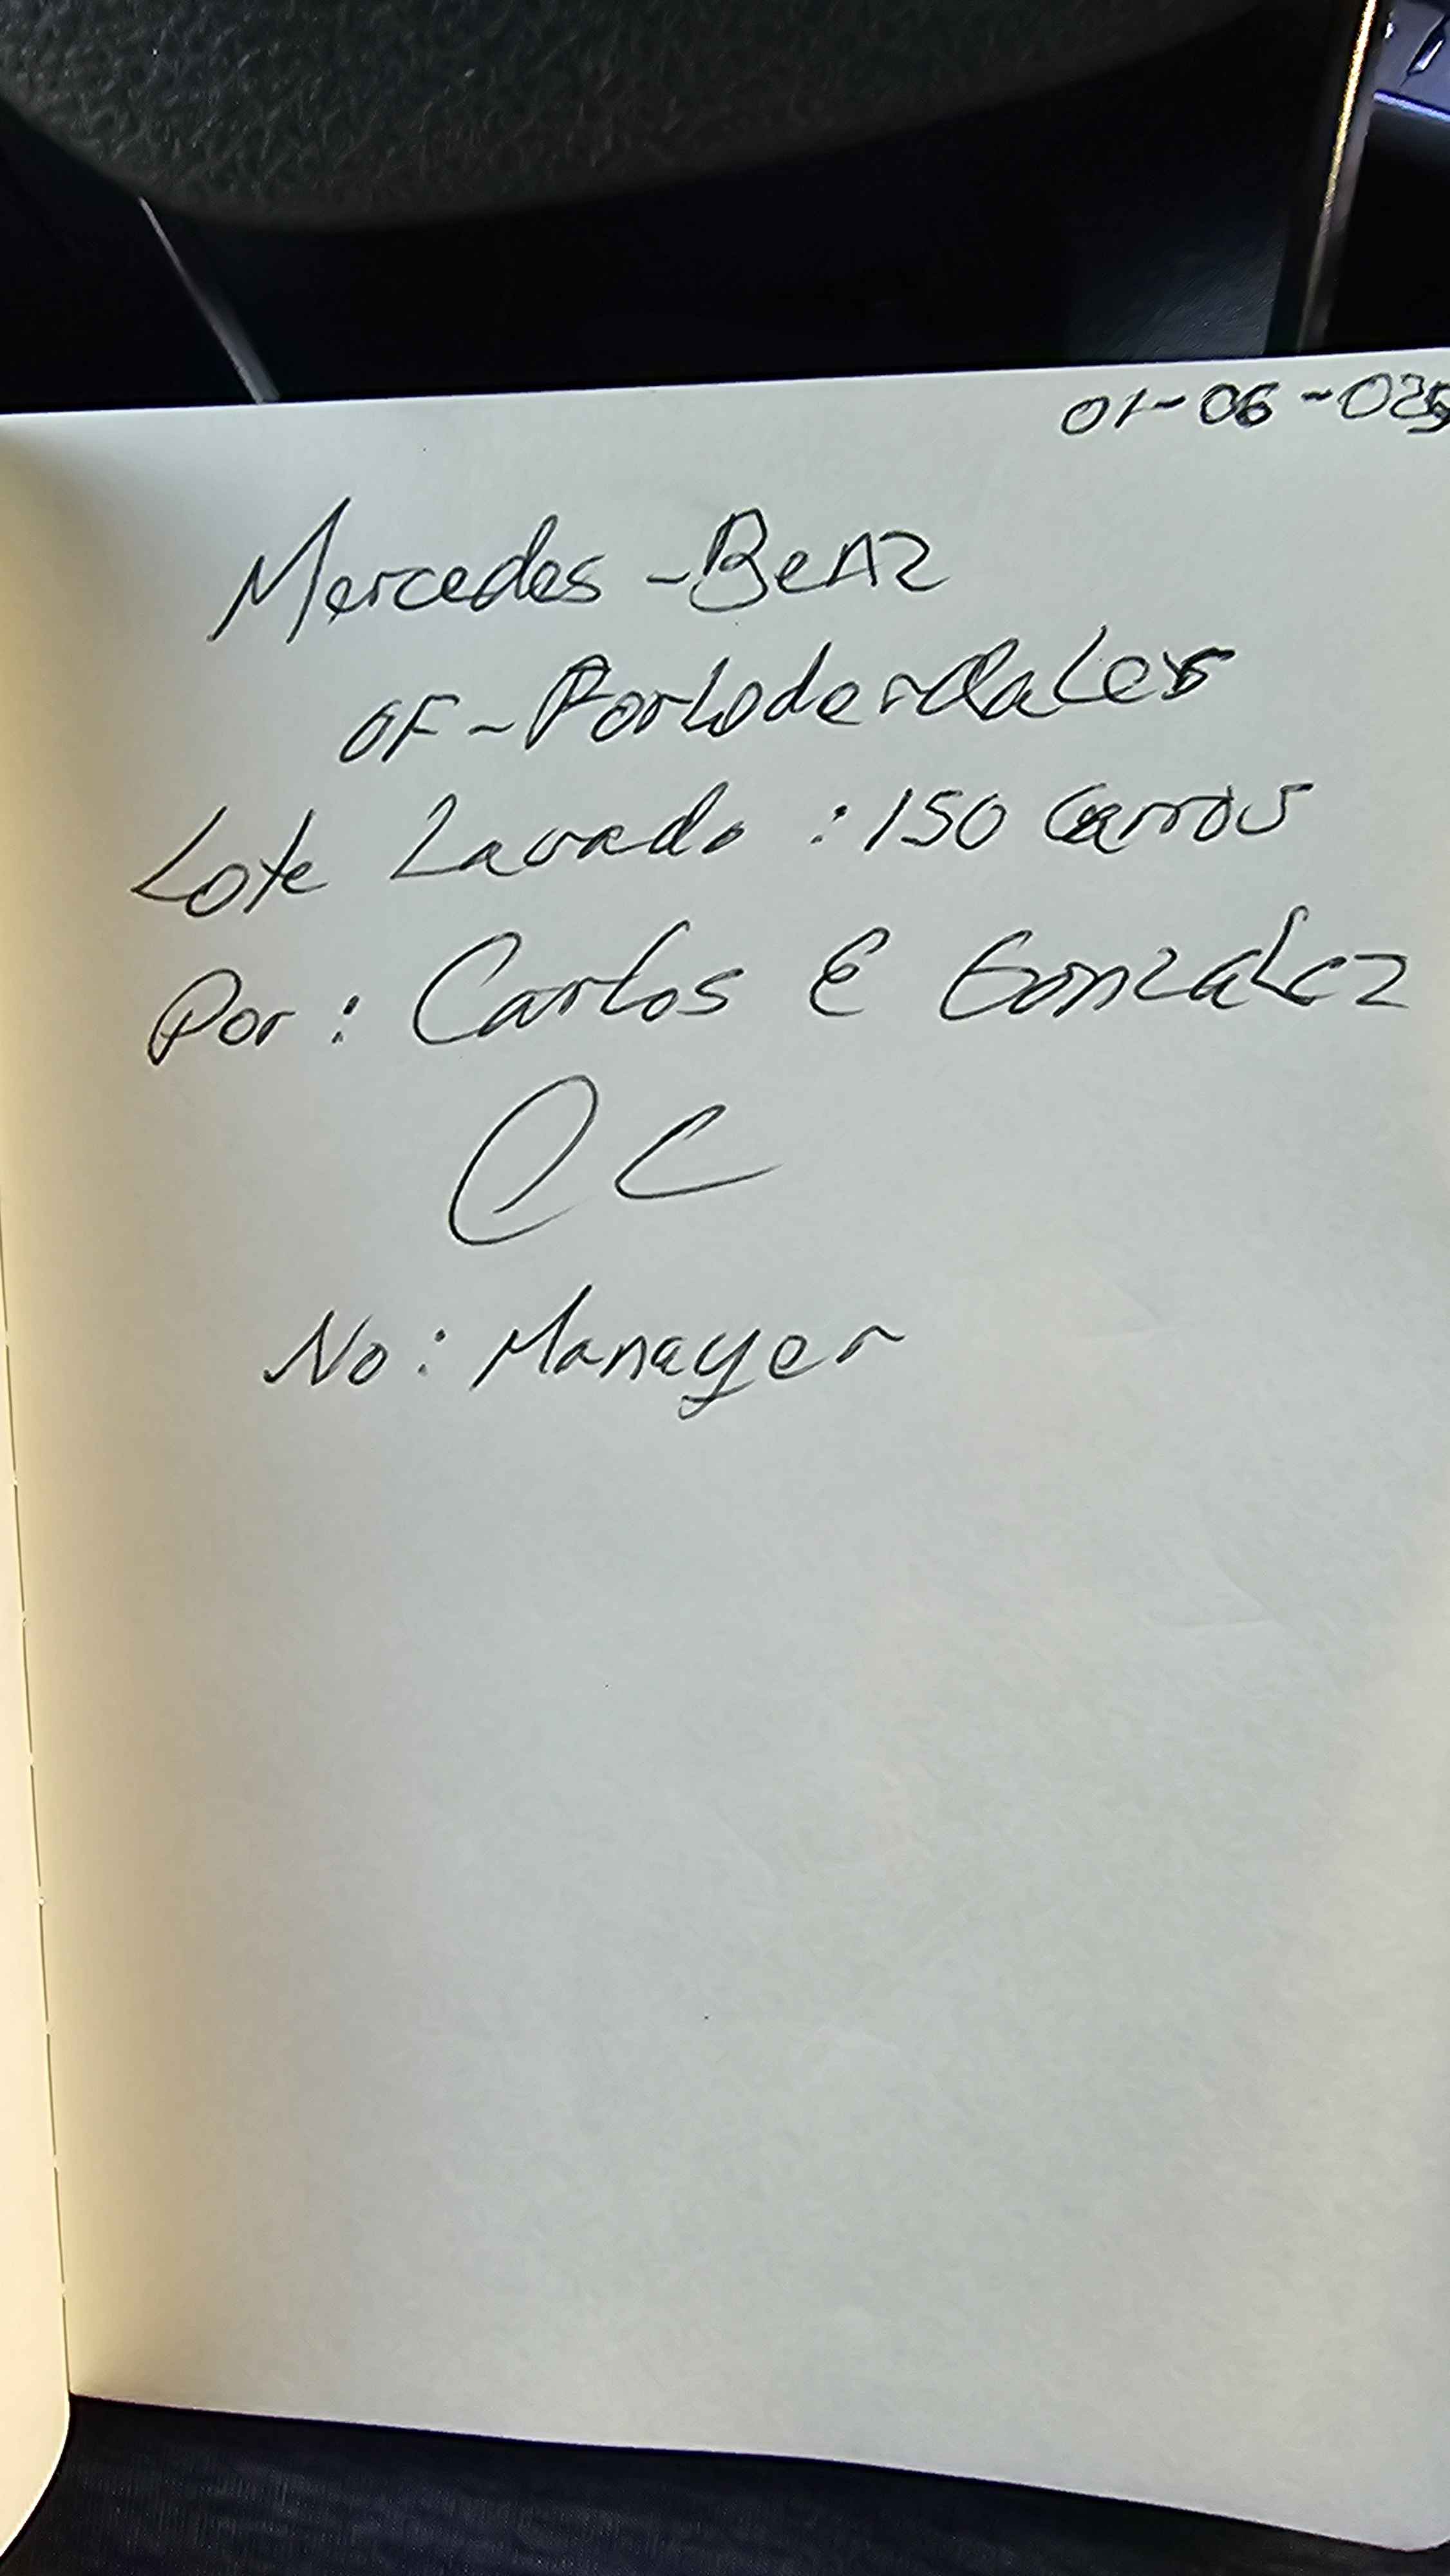 01-06-025
Mercedes-Benz
OF-Forloderdales
Lote Lavado : 150 Carros
Por : Carlos E Gonzalez
No : Manager